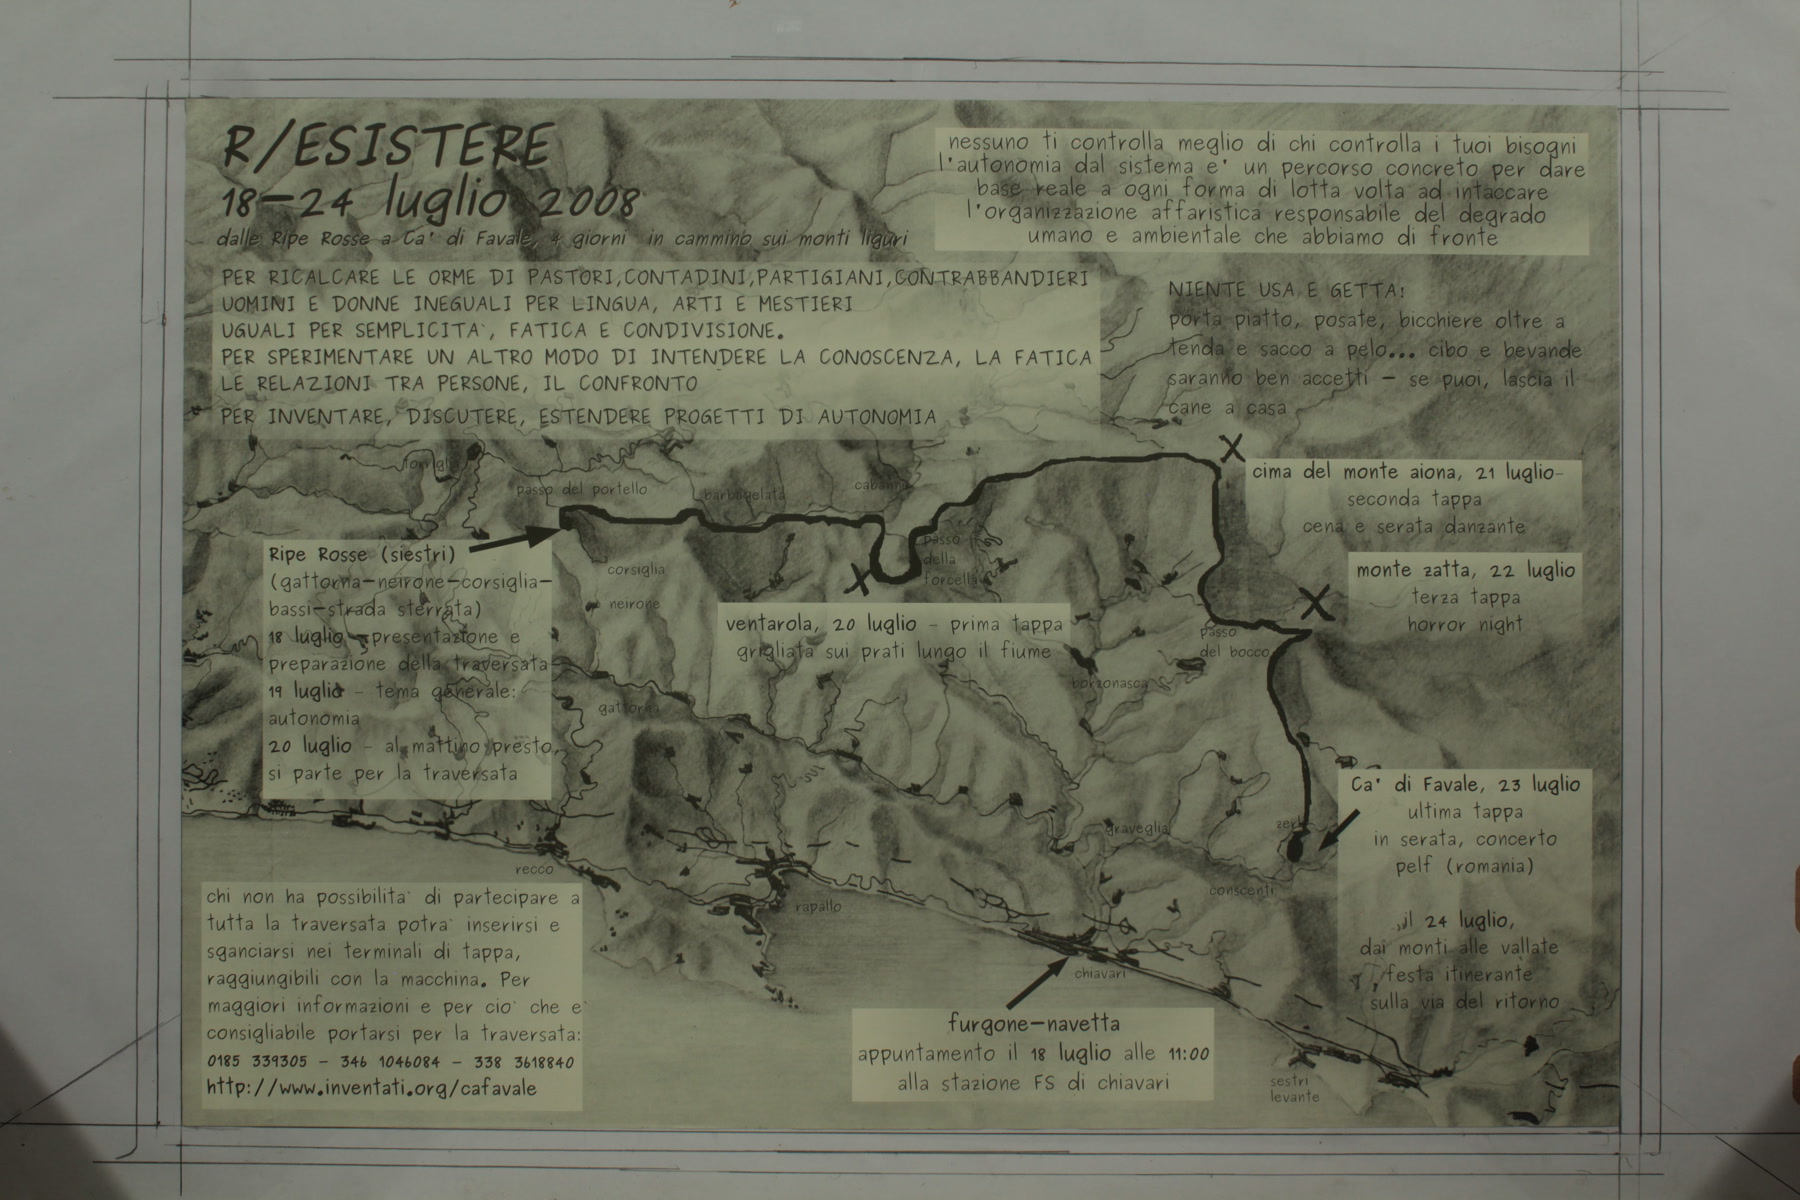 R/ESISTERE
18-24 luglio 2008
dalle Ripe Rosse a Ca' di Favale, 4 giorni in cammino sui monti liguri
nessuno ti controlla meglio di chi controlla i tuoi bisogni
l'autonomia dal sistema e' un percorso concreto per dare
base reale a ogni forma di lotta volta ad intaccare
l'organizzazione affaristica responsabile del degrado
umano e ambientale che abbiamo di fronte
PER RICALCARE LE ORME DI PASTORI,CONTADINI,PARTIGIANI,CONTRABBANDIERI
UOMINI E DONNE INEGUALI PER LINGUA, ARTI E MESTIERI
UGUALI PER SEMPLICITA', FATICA E CONDIVISIONE.
PER SPERIMENTARE UN ALTRO MODO DI INTENDERE LA CONOSCENZA, LA FATICA
LE RELAZIONI TRA PERSONE, IL CONFRONTO
PER INVENTARE, DISCUTERE, ESTENDERE PROGETTI DI AUTONOMIA
NIENTE USA E GETTA!
porta piatto, posate, bicchiere oltre a
tenda e sacco a pelo... cibo e bevande
saranno ben accetti - se puoi, lascia il
cane a casa
torriglia
passo del portello
barbagelata
cabanne
cima del monte aiona, 21 luglio-
seconda tappa
cena e serata danzante
passo
della
forcella
corsiglia
neirone
Ripe Rosse (siestri)
(gattorna-neirone-corsiglia-
bassi-strada sterrata)
18 luglio - presentazione e
preparazione della traversata
19 luglio - tema generale:
autonomia
20 luglio - al mattino presto,
si parte per la traversata
ventarola, 20 luglio - prima tappa
grigliata sui prati lungo il fiume
monte zatta, 22 luglio
terza tappa
horror night
passo
del bocco
borzonasca
gattorna
Ca' di Favale, 23 luglio
ultima tappa
in serata, concerto
pelf (romania)
il 24 luglio,
dai monti alle vallate
festa itinerante
sulla via del ritorno
zerli
graveglia
conscenti
recco
rapallo
chiavari
chi non ha possibilita' di partecipare a
tutta la traversata potra' inserirsi e
sganciarsi nei terminali di tappa,
raggiungibili con la macchina. Per
maggiori informazioni e per cio' che e'
consigliabile portarsi per la traversata:
0185 339305 - 346 1046084 - 338 3618840
http://www.inventati.org/cafavale
furgone-navetta
appuntamento il 18 luglio alle 11:00
alla stazione FS di chiavari
sestri
levante